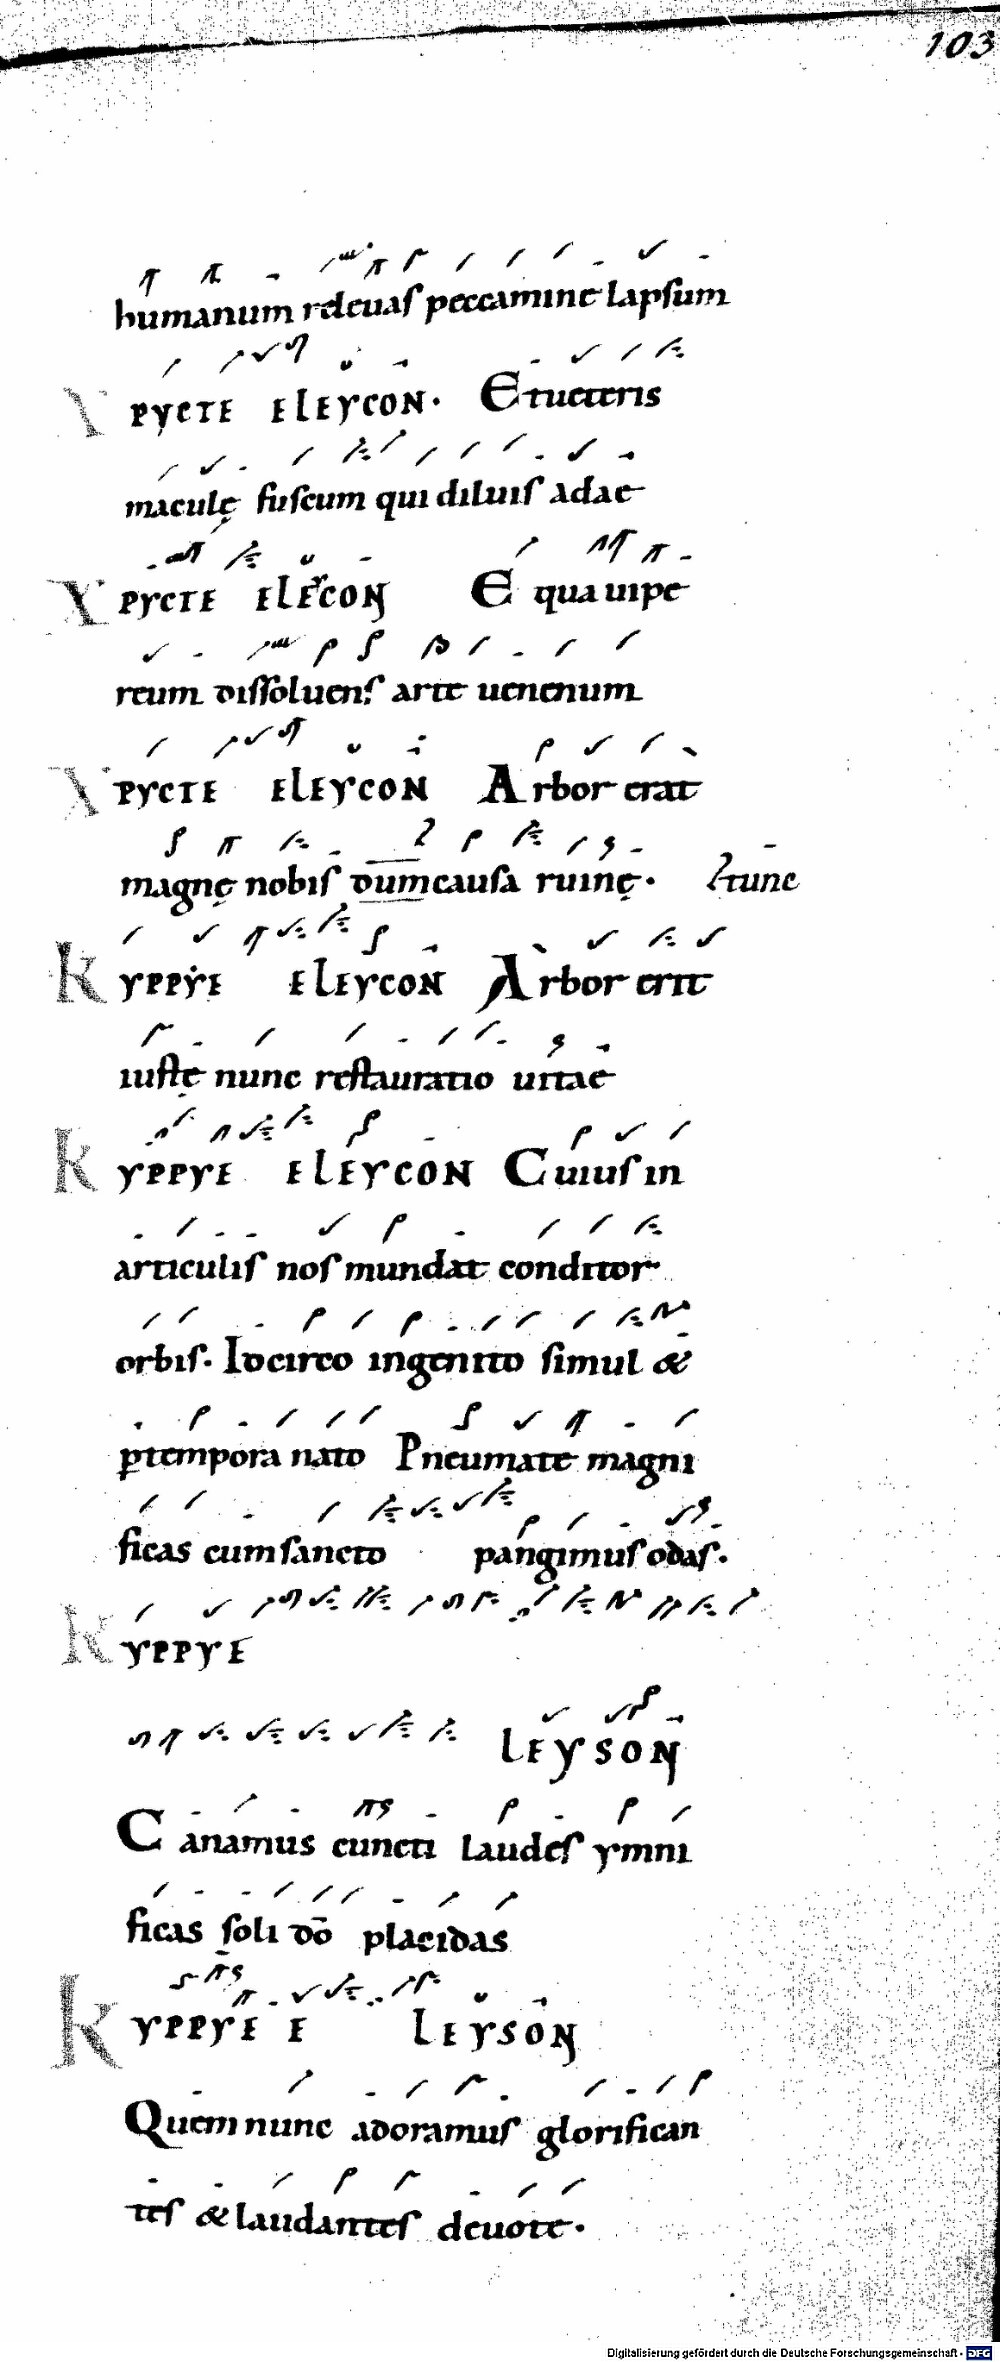 103
humanum releuas peccamine lapsum
XPYCTE ELEYCON. Et ueteris
maculę fuscum qui diluis adae
XPYCTE ELEYCON E qua uipe
reum dissoluens arte uenenum
XPYCTE ELEYCON Arbor erat
magnę nobis dum causa ruinę. ł tunc
KYPPYE ELEYCON Arbor erit
iustę nunc restauratio uitae
KYPPYE ELEYCON Cuius in
articulis nos mundat conditor
orbis. Idcirco ingenito simul &
ꝑ tempora nato Pneumate magni
ficas cum sancto pangimus odas.
KYPPYE
LEYSON
Canamus cuncti laudes ymni
ficas soli dō placidas
KYPPYE E LEYSON
Quem nunc adoramus glorifican
tes & laudantes deuote.
Digitalisierung gefördert durch die Deutsche Forschungsgemeinschaft - DFG